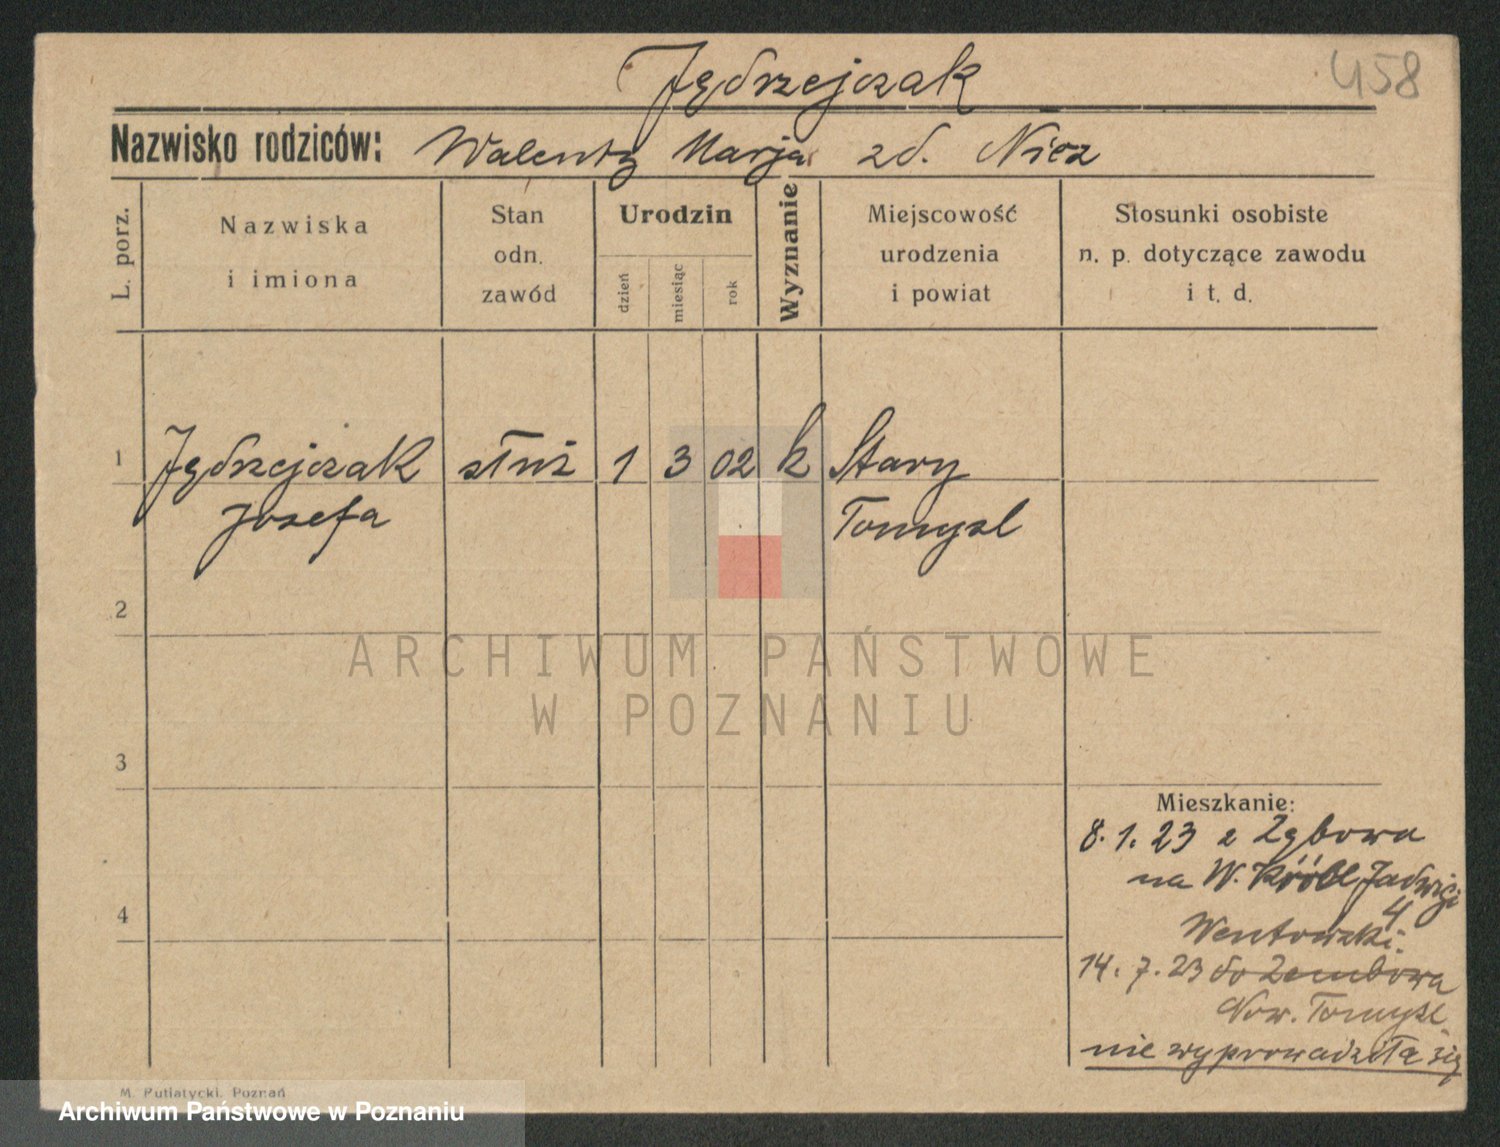 Jędrzejczak
458
Nazwisko rodziców: Walenty Marja zd. Nicz
L. porz.
Nazwiska
i imiona
Stan
odn.
zawód
Urodzin
dzień
miesiąc
rok
Wyznanie
Miejscowość
urodzenia
i powiat
Stosunki osobiste
n. p. dotyczące zawodu
i t. d.
1 Jędrzejczak służ 1 3 02 k Stary
Josefa Tomyśl
2
3
4
Mieszkanie:
8.1.23 z Zębowa
na W. Król. Jadwigi
4
Wentowski.
14.7.23 do Zembowa
Now. Tomyśl
nie wyprowadziła się
M. Putiatycki, Poznań
ARCHIWUM PAŃSTWOWE
W POZNANIU
Archiwum Państwowe w Poznaniu